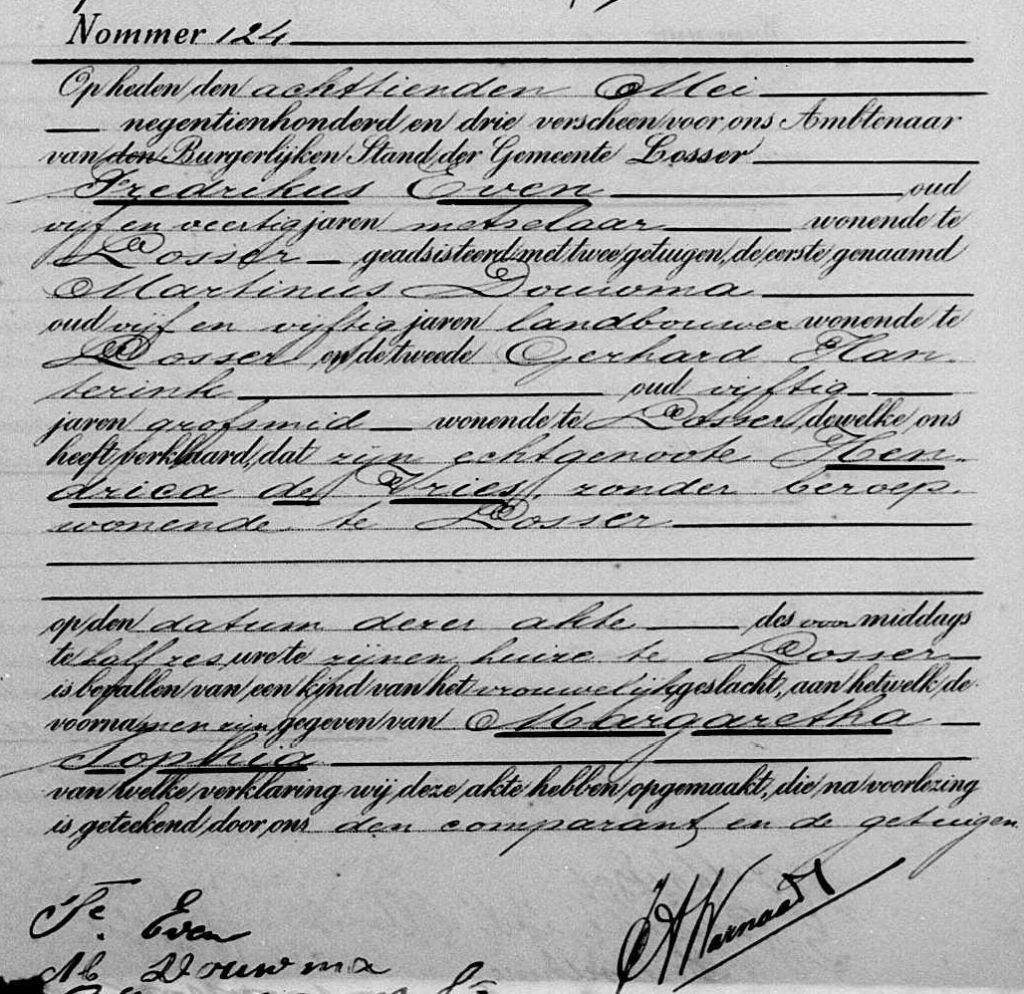 Nommer 124
Op heden den achttienden Mei
negentienhonderd en drie verscheen voor ons Ambtenaar
van den Burgerlijken Stand der Gemeente Losser
Fredrikus Even oud
vijf en veertig jaren metselaar wonende te
Losser geadsisteerd met twee getuigen, de eerste genaamd
Martinus Douwma
oud vijf en vijftig jaren landbouwer wonende te
Losser en de tweede Gerhard Han-
terink oud vijftig
jaren grofsmid wonende te Losser dewelke ons
heeft verklaard, dat zijn echtgenoote Hen-
drica de Vries, zonder beroep,
wonende te Losser
op den datum dezer akte des voormiddags
te half zes ure te zijnen huize te Losser
is bevallen van een kind van het vrouwelijk geslacht, aan hetwelk de
voornamen zijn gegeven van Margaretha
Sophia
van welke verklaring wij deze akte hebben opgemaakt, die na voorlezing
is geteekend door ons den comparant en de getuigen.
Fe. Even
M Douwma